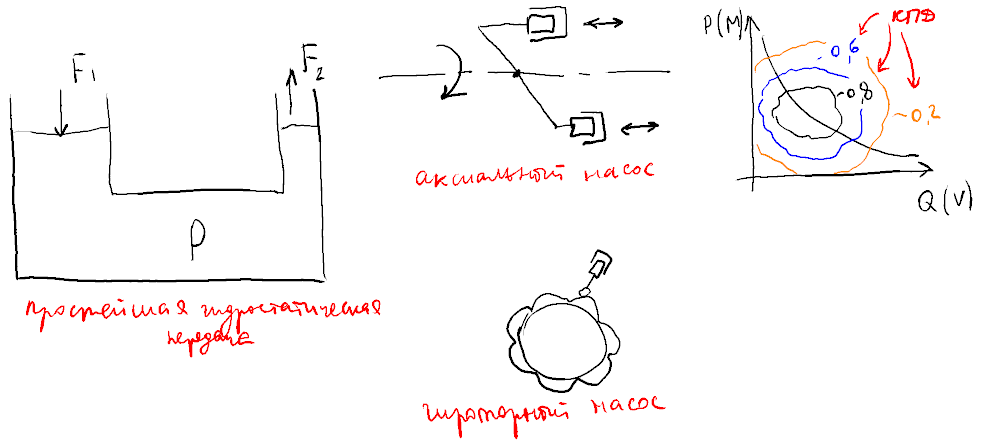 F₁
F₂
p
простейшая гидростатическая
передача
аксиальный насос
P(M)
КПД
0,6
0,8
0,2
Q(V)
гироторный насос